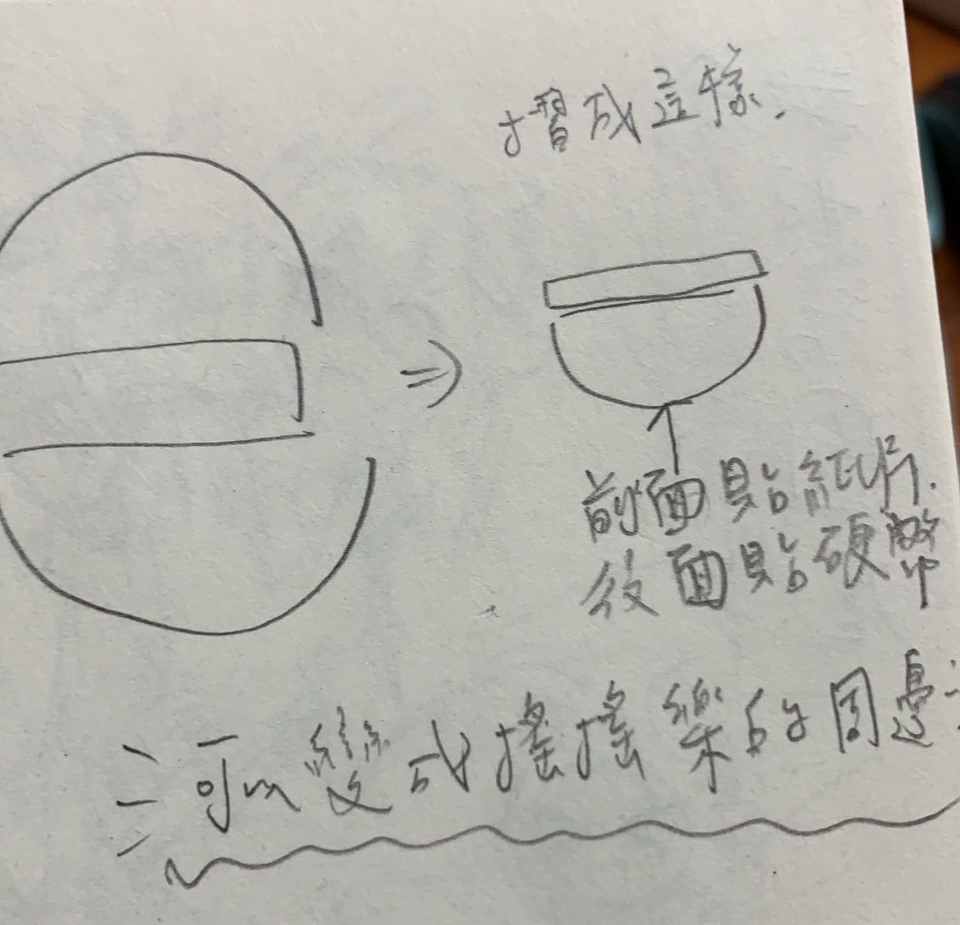 摺成這樣.
前面貼紙片.
後面貼硬幣
可以變成搖搖樂的周邊